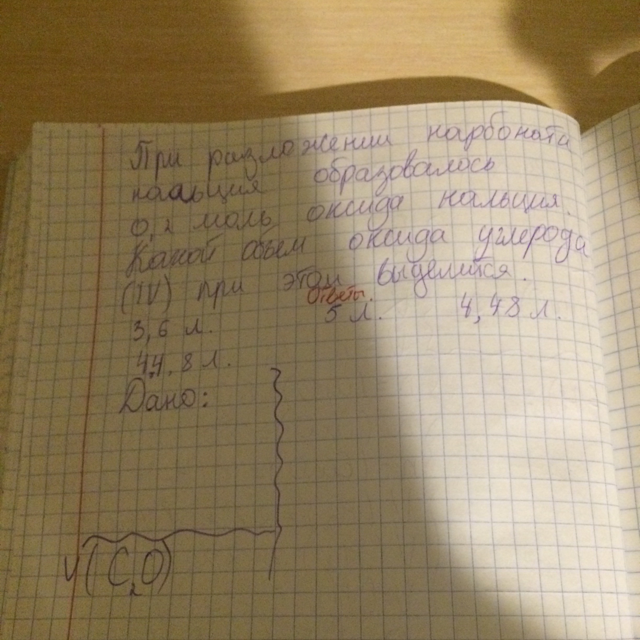 При разложении карбоната
кальция образовалось
0,2 моль оксида кальция.
Какой объм оксида углерода
(IV) при этом выделится.
Ответ.
3,6 л. 5 л. 4,48 л.
44,8 л.
Дано:
V(C,O)